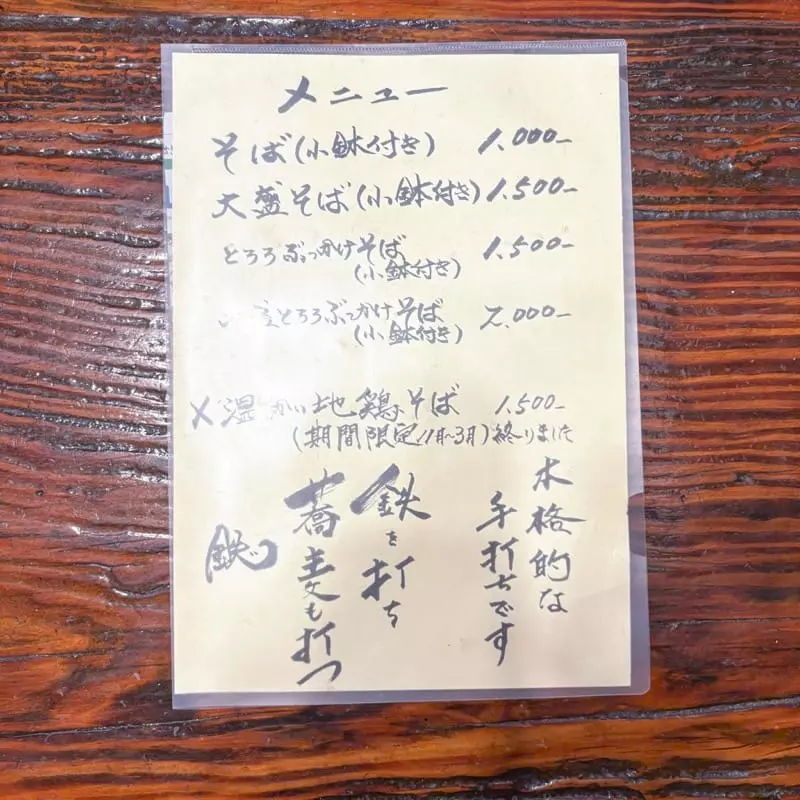 メニュー
そば(小鉢付き) 1.000-
大盛そば(小鉢付き) 1.500-
とろろぶっかけそば 1.500-
(小鉢付き)
とろろぶっかけそば 2.000-
(小鉢付き)
✗温かい地鶏そば 1.500-
(期間限定11月~3月)終りました
本格的な
手打ちです
鉄を打ち
蕎麦も打つ